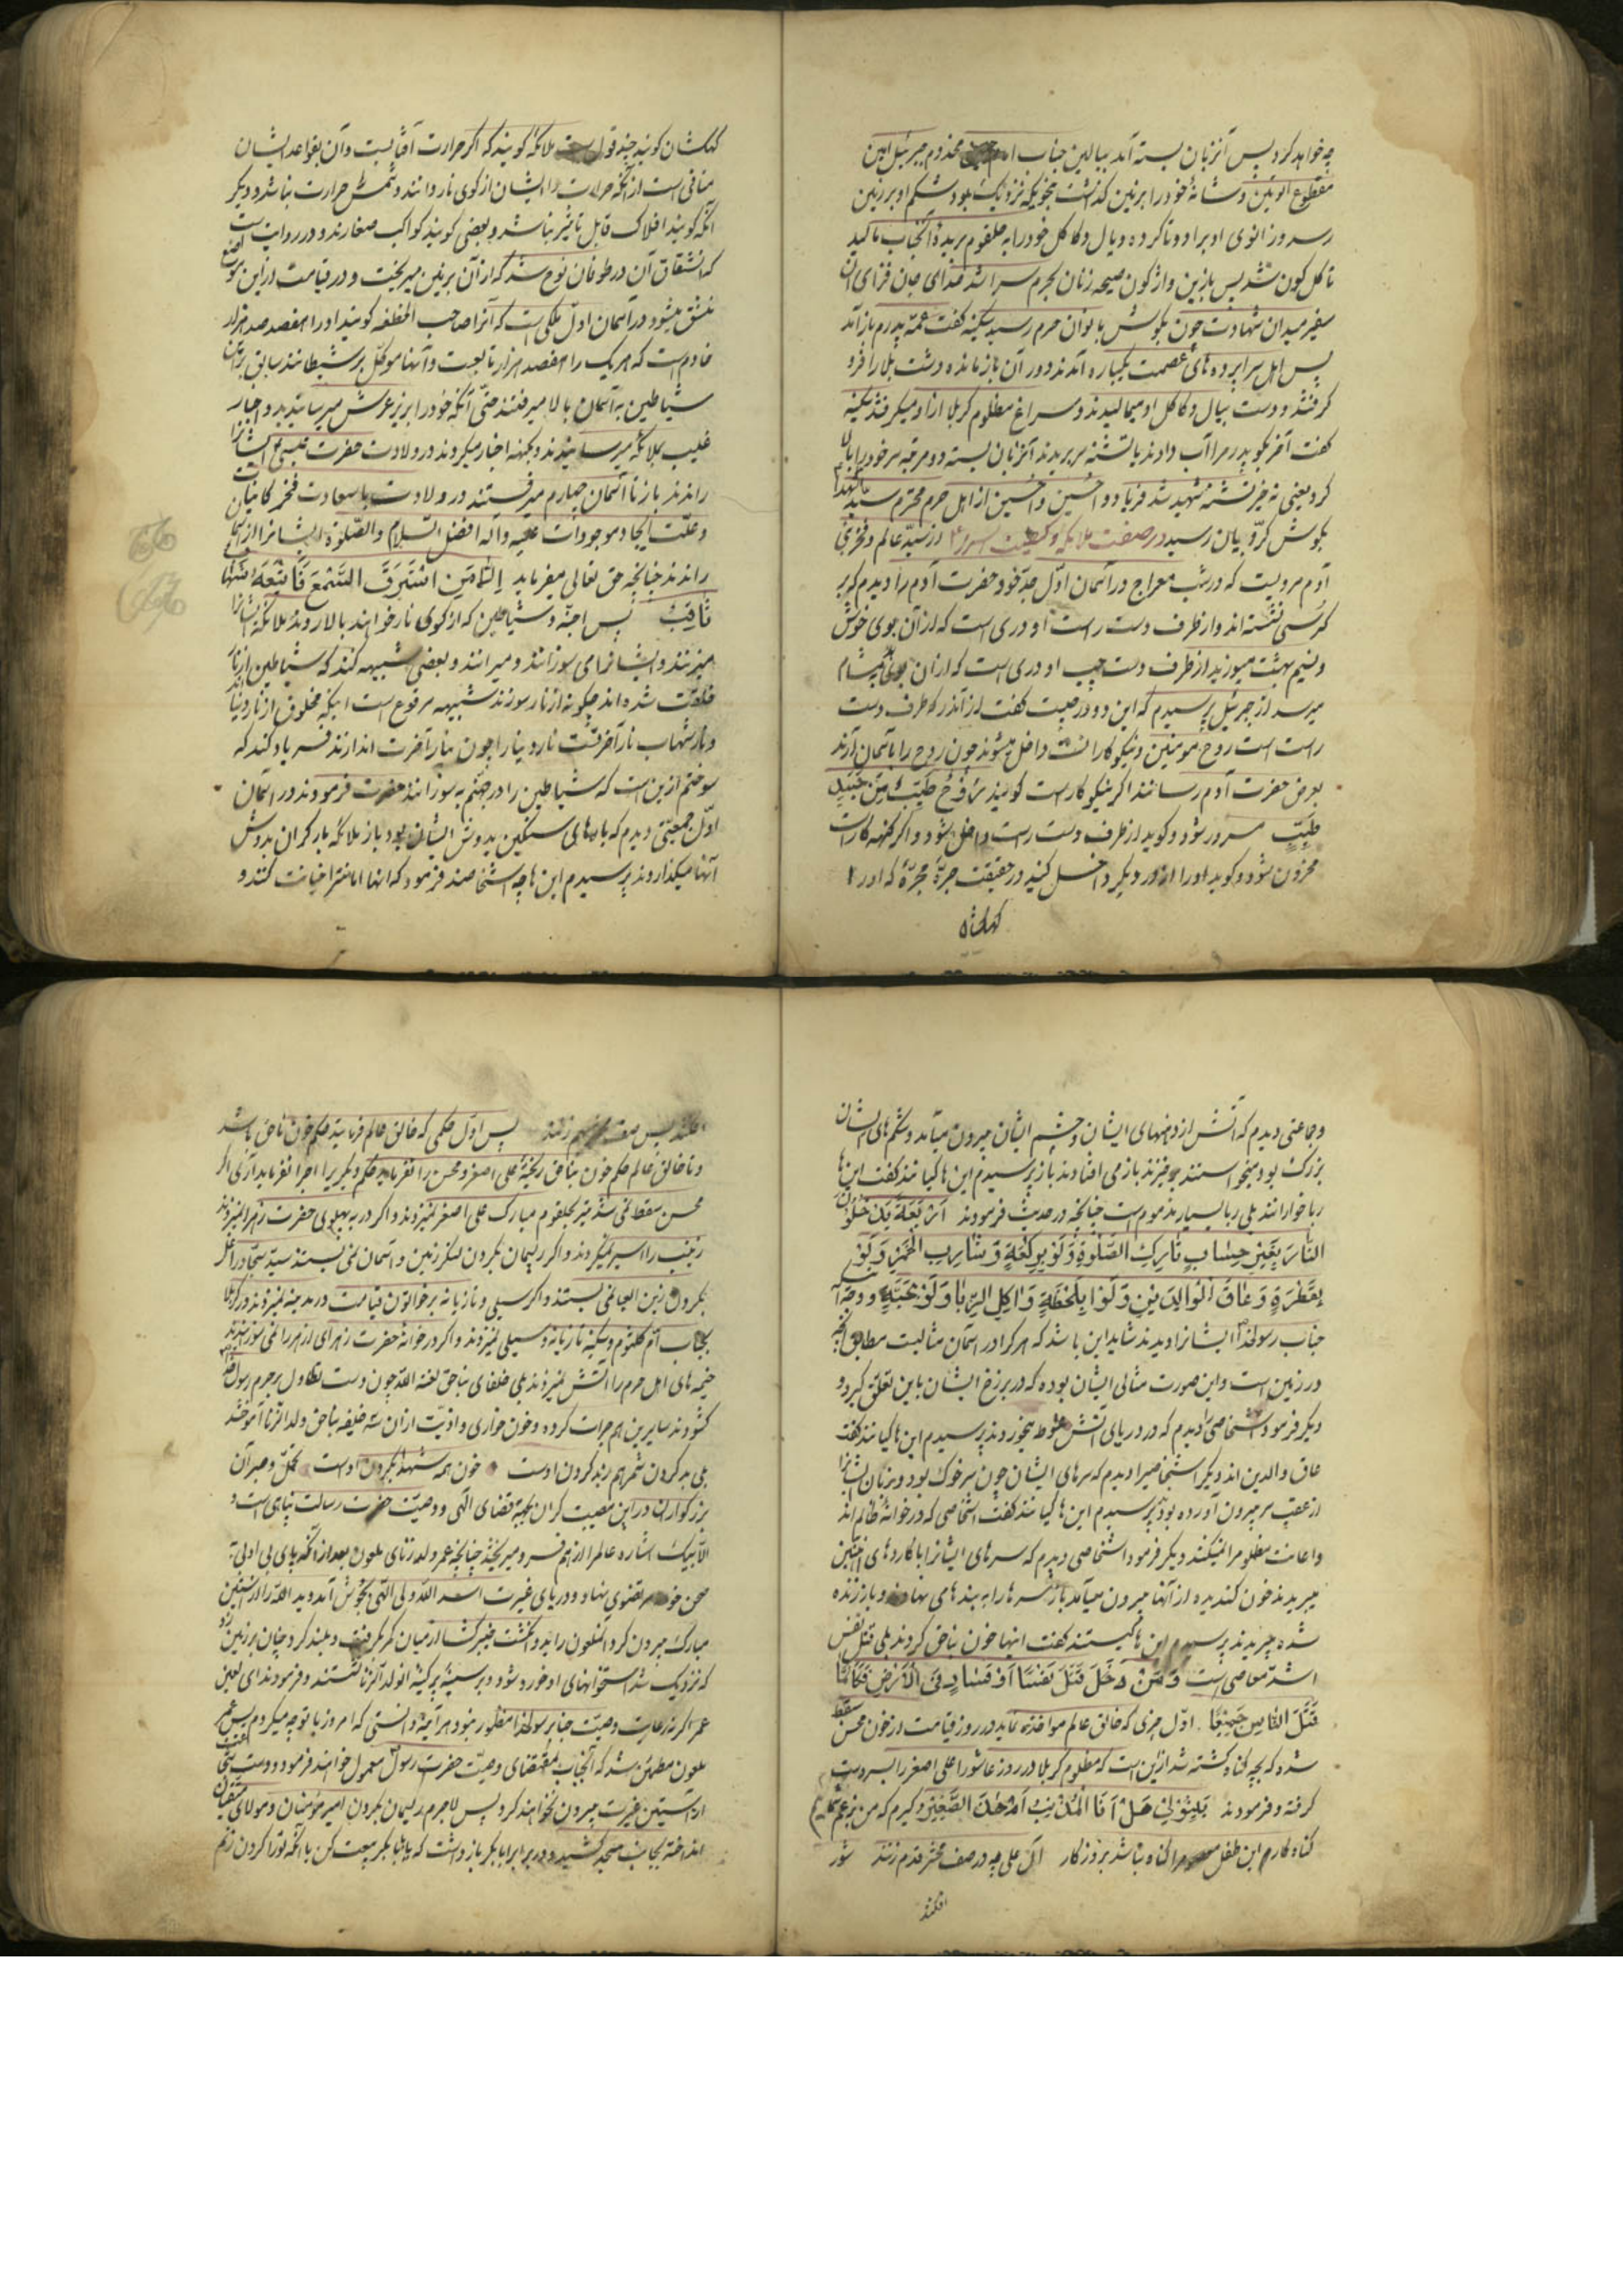 چه خواهد کرد پس آنزبان بسته آمد ببالین جناب مخدوم جبرئیل امین
مقطوع الوتین وشانهٔ خودرا برزمین گذاشت بنحویکه نزدیک بود شکم او برزمین
رسد وزانوی ادب را دوتا کرده ویال وکاکل خودرا به حلقوم بریدهٔ آنجناب مالید
تا گلگون شد پس بازین واژگون صیحه زنان بحرم سرا شد صدای جان فزای آن
سفیر میدان شهادت چون بگوش بانوان حرم رسید سکینه گفت عمه پدرم باز آمد
پس اهل سراپرده های عصمت یکباره آمدند ودور آن بازمانده دشت بلا را فرو
گرفتند ودست بیال وکاکل او میمالیدند وسراغ مظلوم کربلا از او میگرفتند سکینه
گفت آخر بگو پدر مرا آب دادند یا تشنه سر بریدند آنزبان بسته دو مرتبه سر خودرا بالا
کرد یعنی نه خیر تشنه شهید شد فریاد وا حسین وا حسین از اهل حرم محترم سید الشهدا
بگوش کروبیان رسید در صفت ملائکه و از سید عالم وفخر بنی
آدم مرویست که در شب معراج در آسمان اول جد خود حضرت آدم را دیدم که بر
کرسی نشسته اند واز طرف دست راست او دری است که از آن بوی خوش
ونسیم بهشت میوزید از طرف دست چپ او دری است که از آن بوی بد بمشام
میرسد از جبرئیل پرسیدم که این دو در چیست گفت از آندر که طرف دست
راست است روح مومنین ونیکوکاران داخل میشوند چون روح را بآسمان آرند
بعرض حضرت آدم رسانند اگر نیکوکار است گویند رُوحٌ طَیِّبٌ مِنْ جَسَدٍ
طَیِّبٍ مسرور شود وگوید از طرف دست راست داخل شود واگر گنهکار است
محزون شود وگوید اورا از در دیگر داخل کنید در حقیقت جریهٔ مجره که اورا
کهکشان
کهکشان گویند چند قول است ملائکه گویند که اگر حرارت آفتابست وآن بقواعد ایشان
منافی است از آنکه حرارت را ایشان از کوی نار دانند وشمس حرارت نباشد ودیگر
آنکه گویند افلاک قابل تاثیر نباشد وبعضی گویند کواکب صغارند ودر روایت است
که انشقاق آن در طوفان نوح شد که از آن برزمین میریخت ودر قیامت از این موضع
منشق میشود در آسمان اول ملکی است که آنرا صاحب الخطفه گویند اورا هفصد هزار
خادم است که هر یک را هفصد هزار تابعست وآنها موکل بر شیطانند سابق بر آن
شیاطین به آسمان بالا میرفتند حتی آنکه خودرا بزیر عرش میرسانیدند واخبار
غیب بملائکه میرسانیدند وبکهنه اخبار میکردند در ولادت حضرت عیسی ایشانرا
راندند باز تا آسمان چهارم میرفتند در ولادت باسعادت فخر کاینات
وعلت ایجاد موجودات علیه وآله افضل السلام والصلوة ایشانرا از
راندند چنانچه حق تعالی میفرماید اِلّا مَنِ اسْتَرَقَ السَّمْعَ فَاَتْبَعَهُ شِهابٌ
ثاقِبٌ پس اجنه وشیاطین که از کوی نار خواهند بالا روند ملائکه ایشانرا
میزنند وایشانرا می سوزانند ومیرانند وبعضی شبیهه کنند که شیاطین از نار
خلقت شده اند چگونه از نار سوزند شبیهه مرفوع است اینکه مخلوق از نار دنیا
ونار شهاب نار آخرتست نار دنیا را چون بنار آخرت اندازند فریاد کند که
سوختم ازین است که شیاطین را در جهنم به سوزانند حضرت فرمودند در آسمان
اول جمعیتی دیدم که بارهای سنگین بدوش ایشان بود باز ملائکه بار گران بدوش
آنها میگذاردند پرسیدم این ها چه اشخاصند فرمود که اینها امانترا خیانت کنند و
وجماعتی دیدم که آتش از دهنهای ایشان وچشم ایشان بیرون میآمد وشکم های ایشان
بزرگ بود میخواستند برخیزند باز می افتادند باز پرسیدم این ها کیانند گفت این ها
ربا خوارانند بلی ربا بسیار مذموم است چنانچه در حدیث فرمودند اَرْبَعَةٌ یَدْخُلُونَ
النّارَ بِغَیْرِ حِسابٍ تارِکُ الصَّلوةِ وَلَوْ بِرَکْعَةٍ وَشارِبُ الْخَمْرِ وَلَوْ
بِقَطْرَةٍ وَعاقُّ الْوالِدَیْنِ وَلَوْ بِلَحْظَةٍ وَاکِلُ الرِّبا وَلَوْ بِحَبَّةٍ ووجه آنکه
جناب رسولخدا ایشانرا دیدند شاید این باشد که هر کرا در آسمان مثالیست مطابق آنچه
در زمین است واین صورت مثالی ایشان بوده که در برزخ ایشان باین تعلق گیرد و
دیگر فرمود اشخاصی دیدم که در دریای آتش غوطه میخوردند پرسیدم این ها کیانند گفت
عاق والدین اند دیگر اشخاصیرا دیدم که سرهای ایشان چون سر خوک بود وزبان ایشانرا
از عقب سر بیرون آورده بودند پرسیدم این ها کیانند گفت اشخاصی که در خانهٔ ظالم اند
واعانت مظلومرا نمیکنند دیگر فرمود اشخاصی دیدم که سرهای ایشانرا با کاردهای آتشین
میبریدند خون گندیده از آنها بیرون میآمد باز سرها را به بندهای و باز زنده
شده میبریدند پرسیدم این ها کیستند گفت اینها خون بناحق کردند بلی قتل نفس
اشد معاصی است وَمَنْ قَتَلَ نَفْسًا اَوْ فَسادٍ فِی الْاَرْضِ فَکَاَنَّما
قَتَلَ النّاسَ جَمیعًا اول چیزی که خالق عالم مواخذه نماید در روز قیامت از خون محسن سقط
شده که بچه گناه کشته شد ازین است که مظلوم کربلا در روز عاشورا علی اصغر را بسر دست
گرفته وفرمودند هَلْ اَنَا الْمُذْنِبُ اَمْ هٰذَا الصَّغیرُ وگیرم که من بزعم شما
گناه کارم این طفل معصومرا گناه نباشد بروزگار آل علی چه در صف محشر قدم زنند شور
افکنند
افکنند پس زنند پس اول حکمی که خالق عالم فرماید حکم خون ناحق باشد
وتا خالق عالم حکم خون بناحق ریختهٔ علی اصغر ومحسن را نفرماید حکم دیگر را اجرا نفرماید آری اگر
محسن سقط نمی شد تیر بحلقوم مبارک علی اصغر نمیزدند واگر در به پهلوی حضرت زهرا نمیزدند
زینب را اسیر نمیکردند واگر ریسمان بگردن لنگر زمین وآسمان نمی بستند سید سجاد را غل
بگردن زین العباد نمی بستند واگر سیلی وتازیانه بر خواتون قیامت در مدینه نمیزدند در کربلا
بجناب ام کلثوم وسکینه تازیانه وسیلی نمیزدند واگر در خانه حضرت زهرای ازهر را نمی سوزانیدند
خیمه های اهل حرم را آتش نمیزدند بلی خلفای بناحق لعنة الله چون دست تطاول بر حرم رسول
گشودند سایرین هم جرات کرده وخون خواری واذیت از آن سه خلیفه بناحق ولد الزنا آموختند
خون همه شهدا بگردن اوست تحمل وصبر آن
بزرگواران در این مصیبت گران بجهة قضای الهی ووصیت حضرت رسالت پناهی است و
الا بیک اشاره عالمرا از هم فرو میریختند چنانچه عمر ولد زنای ملعون بعد از آنکه پای بی ادبی به
صحن نهاد ودریای غیرت اسد الله ولی الهی بجوش آمد وید الله را از آستین
مبارک بیرون کرد آنملعون را بدو انگشت خیبر گشا از میان کمر گرفت وبلند کرد وچنان برزمین زد
که نزدیک شد استخوانهای او خورد شود وبر سینهٔ پر کینهٔ آنولد الزنا نشستند وفرمودند ای لعین
عمرا گر نه رعایت وصیت جناب رسولخدا منظور بنود هر آینه دانستی که امروز با تو چه میکردم پس عمر
ملعون مطمئن شد که آنجناب بمقتضای وصیت حضرت رسول معمول خواهند فرمود ودست
از آستین غیرت بیرون نخواهند کرد پس لاجرم ریسمان بگردن امیر مومنان ومولای متقیان
انداخته بجانب مسجد کشید ودر برابر ابابکر باز داشت که یا با ابابکر بیعت کن یا آنکه تورا گردن زنم